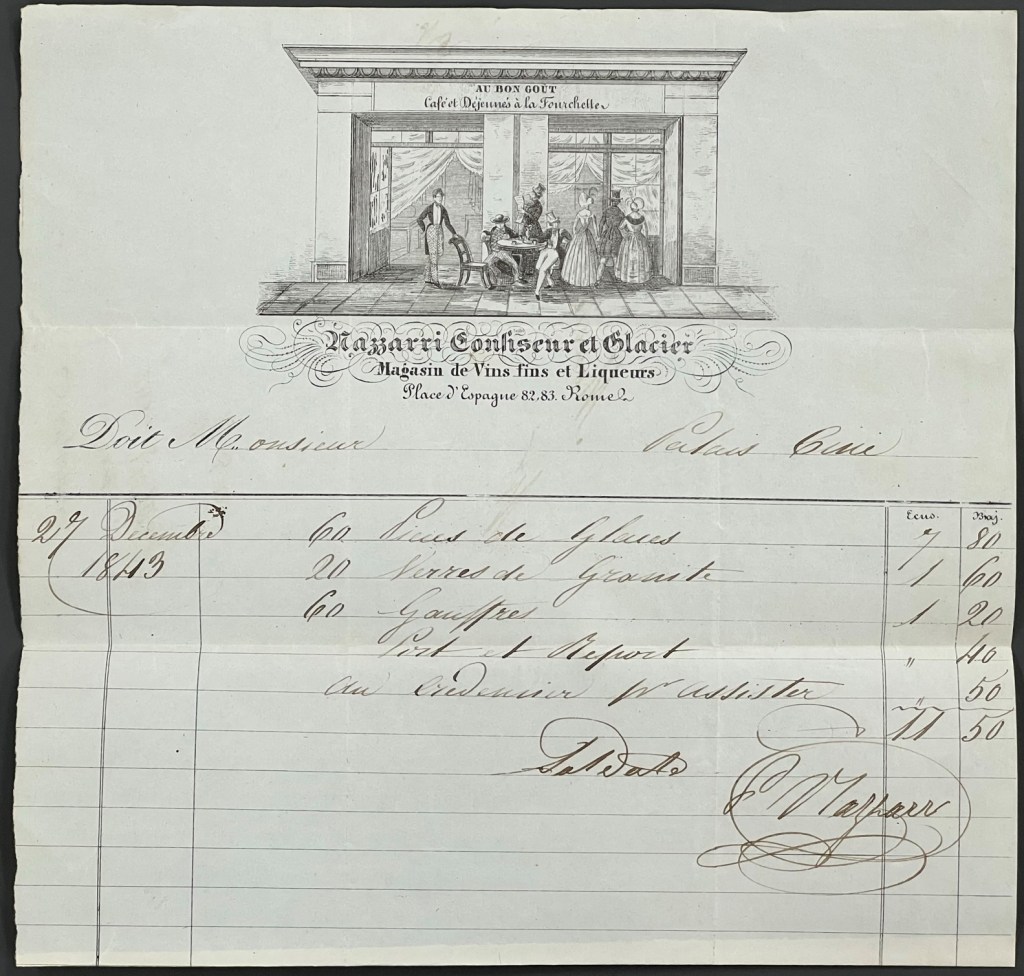 AU BON GOÛT
Café et Déjeunés à la Fourchette
Nazzarri Confiseur et Glacier
Magasin de Vins fins et Liqueurs
Place d'Espagne 82.83. Rome
Doit Monsieur Palais
Ecus. Baj.
27 Decembre 60 de Glaces 7 80
1843 20 Verres de Granite 1 60
60 Gauffres 1 20
Port et Report " 40
au Credencier pr assister " 50
11 50
Saldato
P Nazzarri